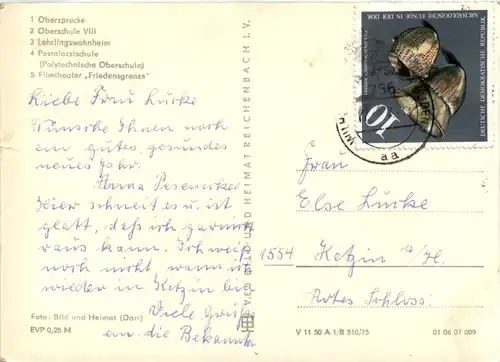 1 Obersprucke
2 Oberschule VIII
3 Lehrlingswohnheim
4 Pestalozzischule
(Polytechnische Oberschule)
5 Filmtheater „Friedensgrenze"
Liebe Frau Lücke
Wünsche Ihnen noch
ein gutes gesundes
neues Jahr.
Hanna
Hier schneit es u. ist
glatt, daß ich garnicht
raus kann. Ich weiß
noch nicht, wann ich
wieder in Ketzin bin
Viele Grüße
an die Bekannten
Foto: Bild und Heimat (Darr)
EVP 0,25 M
VEB BILD UND HEIMAT REICHENBACH I. V.
ARCHÄOLOGISCHE FUNDE IN DER DDR
DEUTSCHE DEMOKRATISCHE REPUBLIK
10
aa
Frau
Else Lücke
1554 Ketzin a/H.
Rotes Schloss.
V 11 50 A 1/B 510/75
01 06 07 099